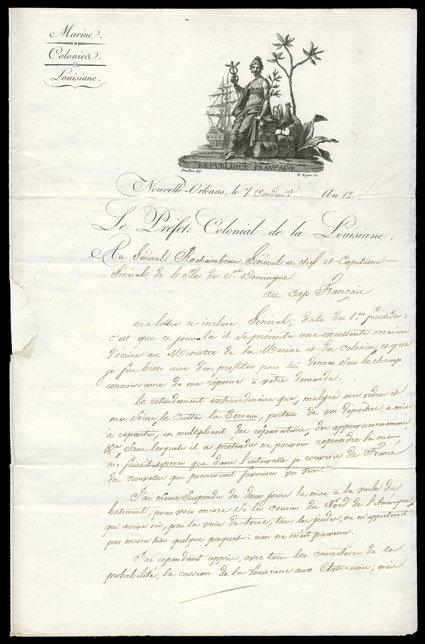 Marine.
Colonies.
Louisiane.
RÉPUBLIQUE FRANÇAISE.
Nouvelle-Orléans, le 7 Vendre. An 12
Le Préfet Colonial de la Louisiane,
Au Général Rochambeau, Général en chef et Capitaine
Général de l'Ile de St. Domingue
au Cap Français
ma lettre ci-incluse, Général, date du 1er fructidor:
c'est que ce jour là il se présenta une excellente occasion
d'écrire au Ministre de la Marine et des Colonies, et que
je fus bien aise d'en profiter pour lui donner sur le champ
connaissance de ma réponse à votre demande.
Le retardement extraordinaire que, malgré mes ordres et
mes soins, le Cutter la Terreur, porteur de vos dépêches, a mis
à repartir, en multipliant des réparations, des approvisionnemens
&ca., sans lesquels il a prétendu ne pouvoir reprendre la mer,
me faisait espérer que dans l'intervalle je recevrais de France
des nouvelles qui pourraient favoriser vos vues.
J'ai même suspendu de deux jours la mise à la voile du
bâtiment, pour voir encore si le courier du Nord de l'Amérique,
qui arrive ici, par la voie de terre, tous les jeudis, ne m'apporterait
pas encore hier quelque paquet: rien ne m'est parvenu.
J'ai cependant appris, avec tous les caractères de la
probabilité, la cession de la Louisiane aux Etats-unis; mais